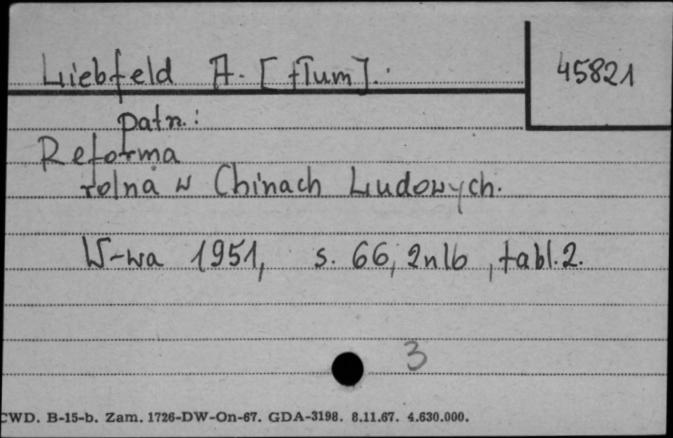 Liebfeld A. [tłum].
45821
patrz:
Reforma
rolna w Chinach Ludowych.
W-wa 1951, s. 66, 2nlb, tabl. 2.
3
CWD. B-15-b. Zam. 1726-DW-On-67. GDA-3198. 8.11.67. 4.630.000.